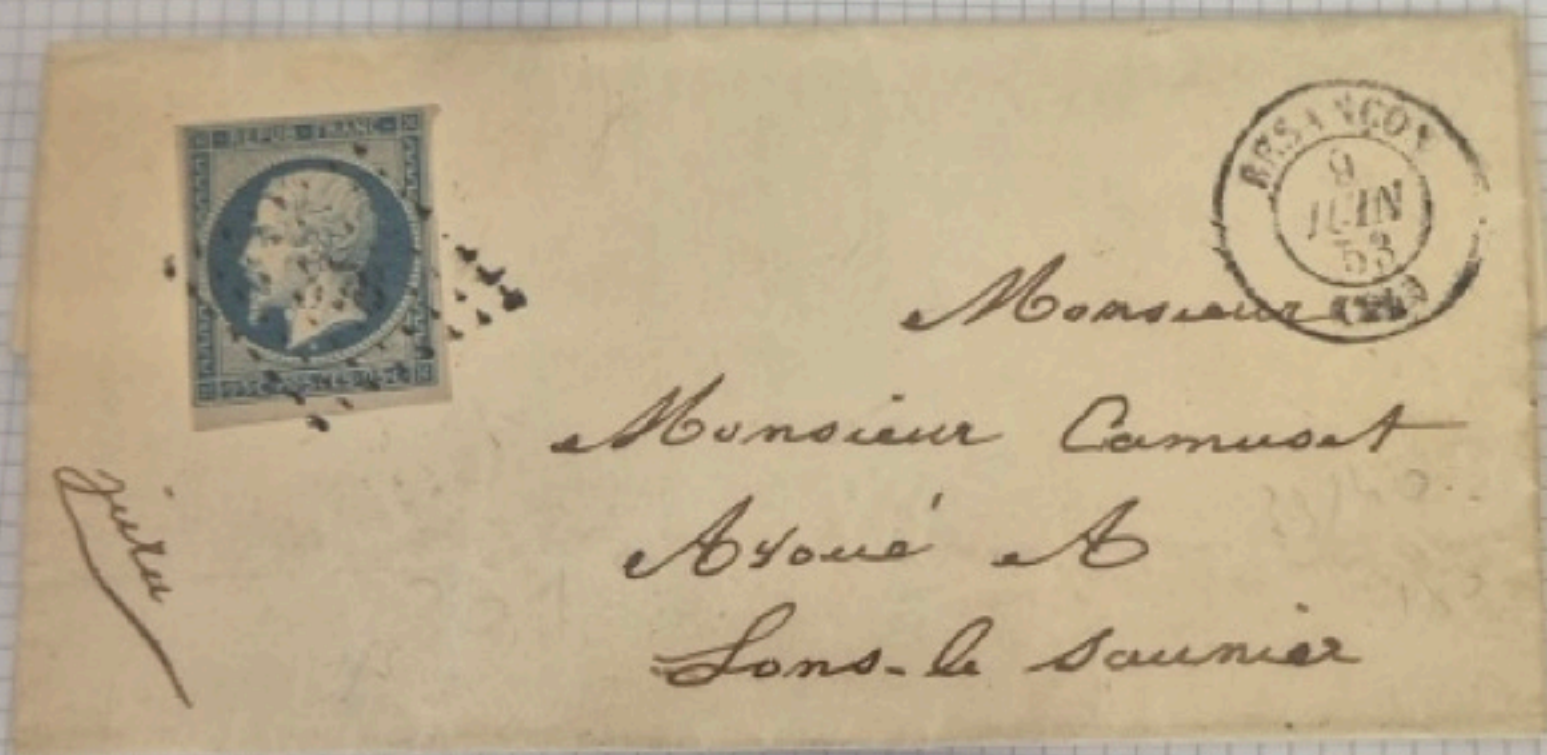 REPUB · FRANC
BESANÇON
9
JUIN
53
(24)
Monsieur
Monsieur Camuset
Avoué A
Lons-le Saunier